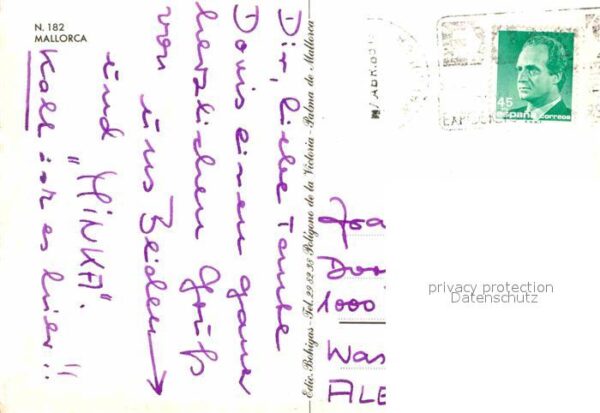 N. 182
MALLORCA
Dir, liebe Tante
Doris einen ganz
herzlichen Gruß
von uns Beiden
und "MINKA".
Kalt ist es hier!!
Edic. Bohigas - Tel. 22 82 38 Polígono de la Victoria - Palma de Mallorca
ABR.
45
españa correos
1000
Was
ALE
privacy protection
Datenschutz